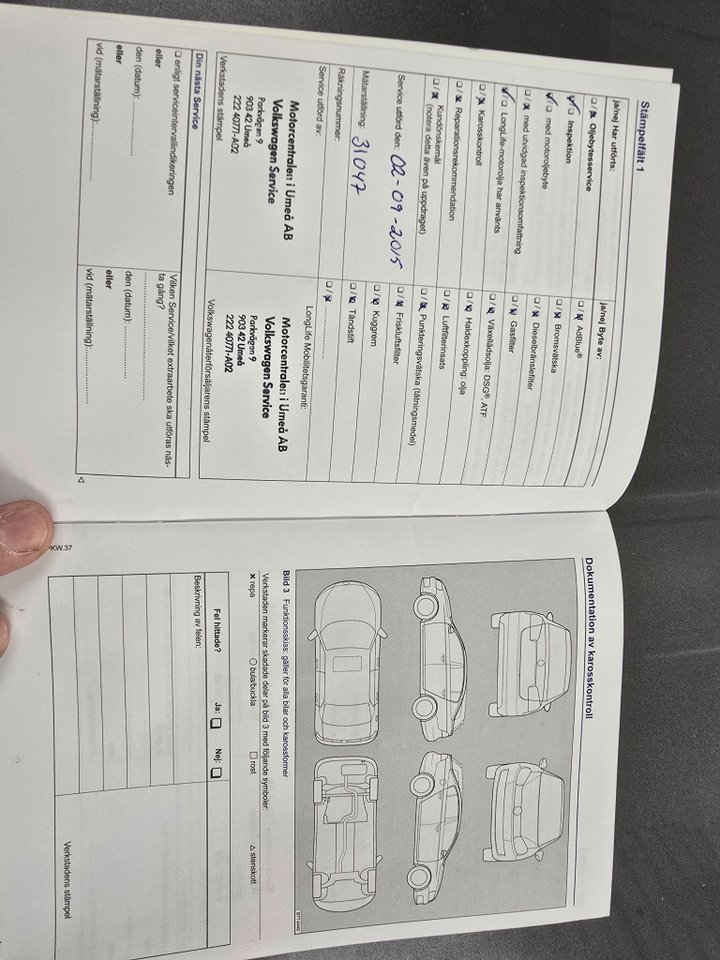 Stämpelfält 1
ja/nej Har utförts:
❑ / ☒ Oljebytesservice
☑ / ❑ Inspektion
☑ / ❑ med motoroljebyte
❑ / ☒ med utvidgad inspektionsomfattning
☑ / ❑ LongLife-motorolja har använts
❑ / ☒ Karosskontroll
❑ / ☒ Reparationsrekommendation
❑ / ☒ Kundönskemål
(notera detta även på uppdraget)
Service utförd den: 02-09-2015
Mätarställning: 31047
Räkningsnummer:
Service utförd av:
Motorcentralen i Umeå AB
Volkswagen Service
Parkvägen 9
903 42 Umeå
222 40771-A02
Verkstadens stämpel
ja/nej Byte av:
❑ / ☒ AdBlue®
❑ / ☒ Bromsvätska
❑ / ☒ Dieselbränslefilter
❑ / ☒ Gasfilter
❑ / ☒ Växellådsolja: DSG®, ATF
❑ / ☒ Haldexkoppling: olja
❑ / ☒ Luftfilterinsats
❑ / ☒ Punkteringsvätska (tätningsmedel)
❑ / ☒ Friskluftsfilter
❑ / ☒ Kuggrem
❑ / ☒ Tändstift
❑ / ☒ ....................
LongLife Mobilitetsgaranti:
Motorcentralen i Umeå AB
Volkswagen Service
Parkvägen 9
903 42 Umeå
222 40771-A02
Volkswagenåterförsäljarens stämpel
Din nästa Service
❑ enligt serviceintervallindikeringen
eller
den (datum): ....................
eller
vid (mätarställning): ....................
Vilken Service/vilket extraarbete ska utföras näs-
ta gång?
....................
den (datum): ....................
eller
vid (mätarställning): ....................
◁
KW.37
Dokumentation av karosskontroll
B7T-0440
Bild 3 Funktionsskiss: gäller för alla bilar och karossformer
Verkstaden markerar skadade delar på bild 3 med följande symboler:
× repa ○ bula/buckla □ rost △ stenskott
Fel hittade? Ja: ❑ Nej: ❑
Beskrivning av felen:
Verkstadens stämpel